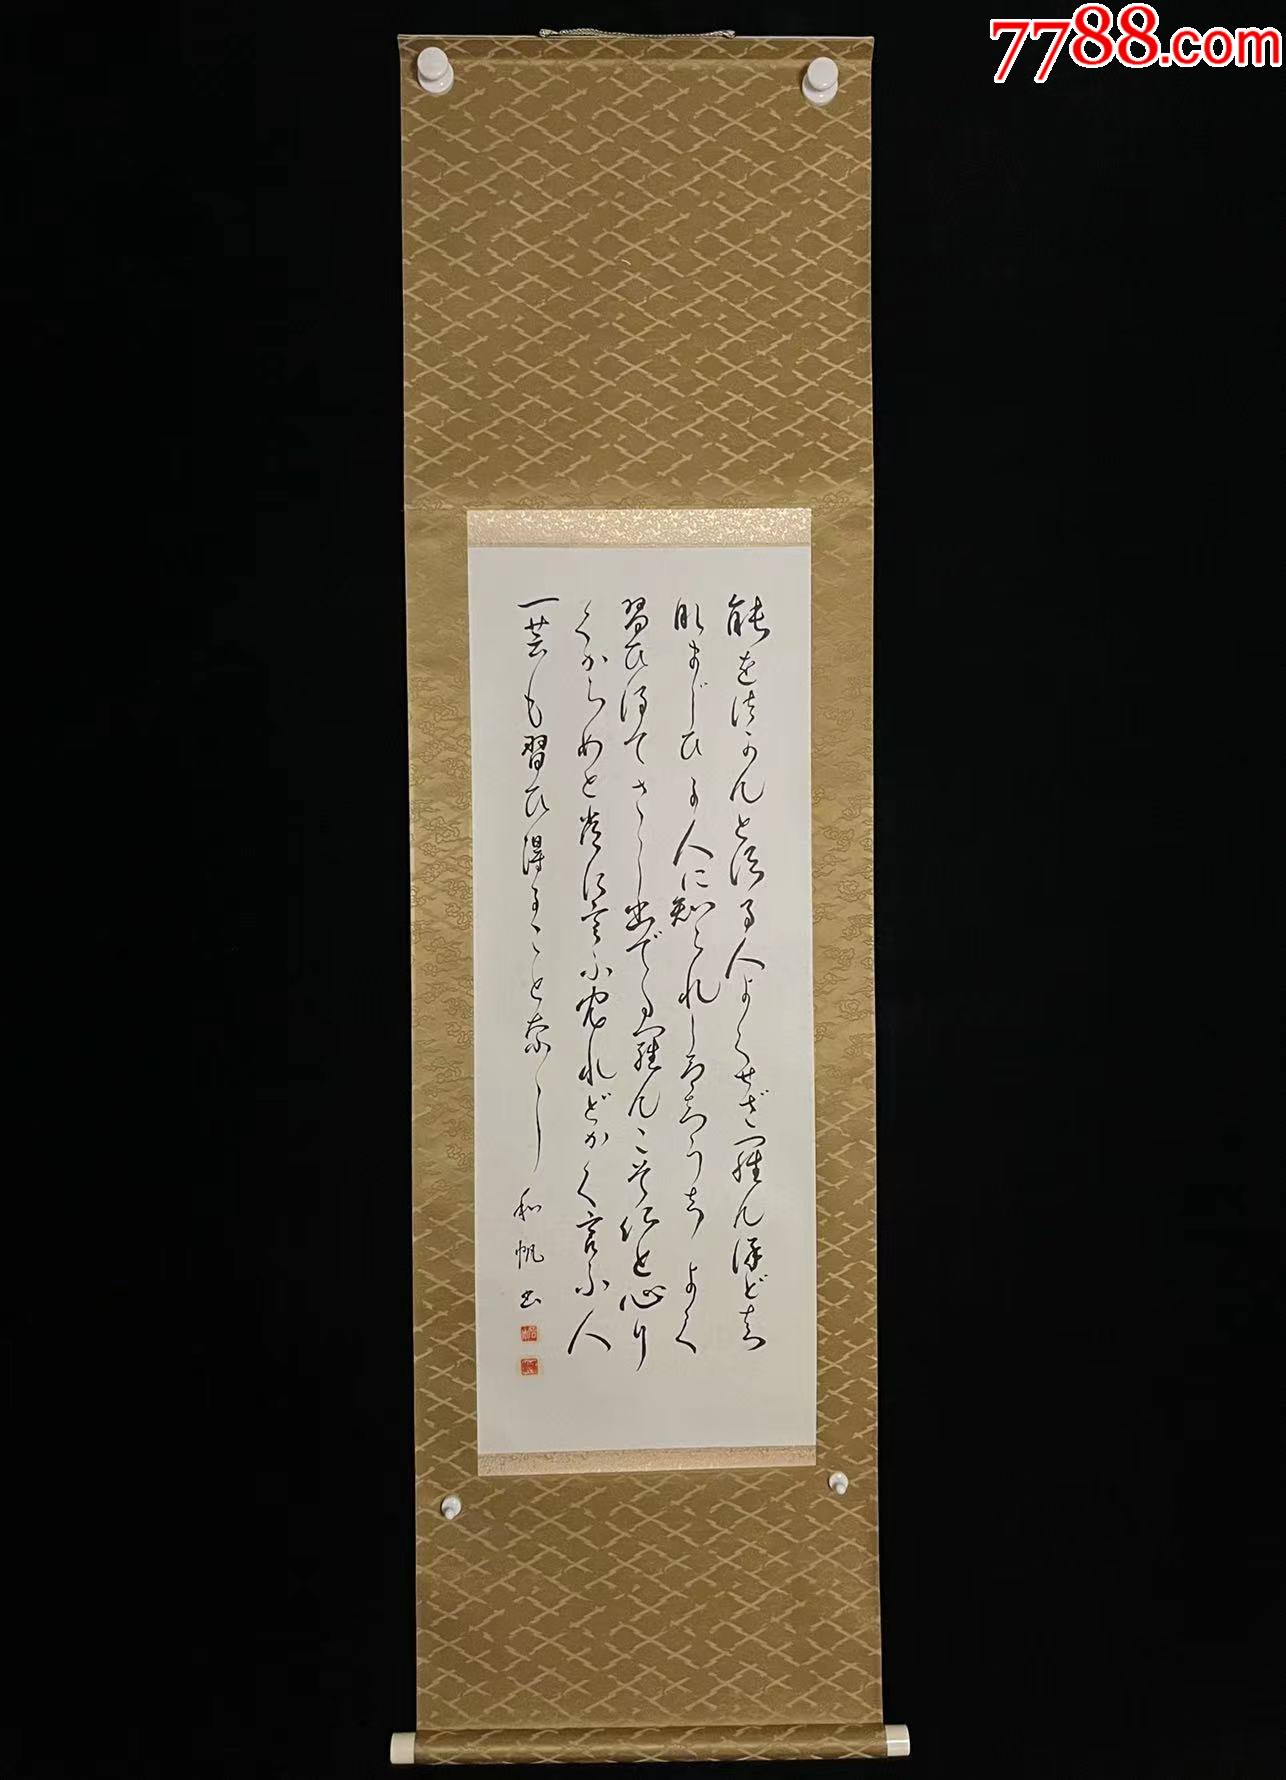 7788.com
能をつかんとする人よくせざらんほどは
なまじひに人に知られじうちうちよく
習ひ得てさし出でたらんこそいと心に
くからめと常に言ふめれどかく言ふ人
一芸も習ひ得ることなし 和帆書